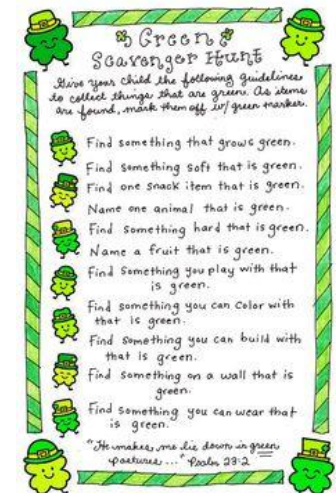 Green
Scavenger Hunt
Give your child the following guidelines
to collect things that are green. As items
are found, mark them off w/ green marker.
Find something that grows green.
Find something soft that is green.
Find one snack item that is green.
Name one animal that is green.
Find something hard that is green.
Name a fruit that is green.
Find Something you play with that
is green.
Find something you can color with
that is green.
Find something you can build with
that is green.
Find something on a wall that is
green.
Find something you can wear that
is green.
"He makes me lie down in green
pastures..." Psalm 23:2